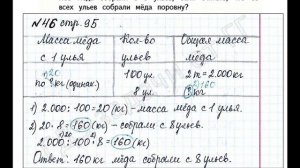 всех ульев собрали мёда поровну?
№46 стр. 95
Масса мёда с 1 улья
Кол-во ульев
Общая масса мёда
?20 по ? кг (одинак.)
100 ул.
2 т = 2.000 кг
8 ул.
?160 ? кг
1) 2.000 : 100 = 20 (кг) - масса мёда с 1 улья.
2) 20 · 8 = 160 (кг) - собрали с 8 ульев.
2.000 : 100 · 8 = 160 (кг)
Ответ: 160 кг мёда собрали с 8 ульев.